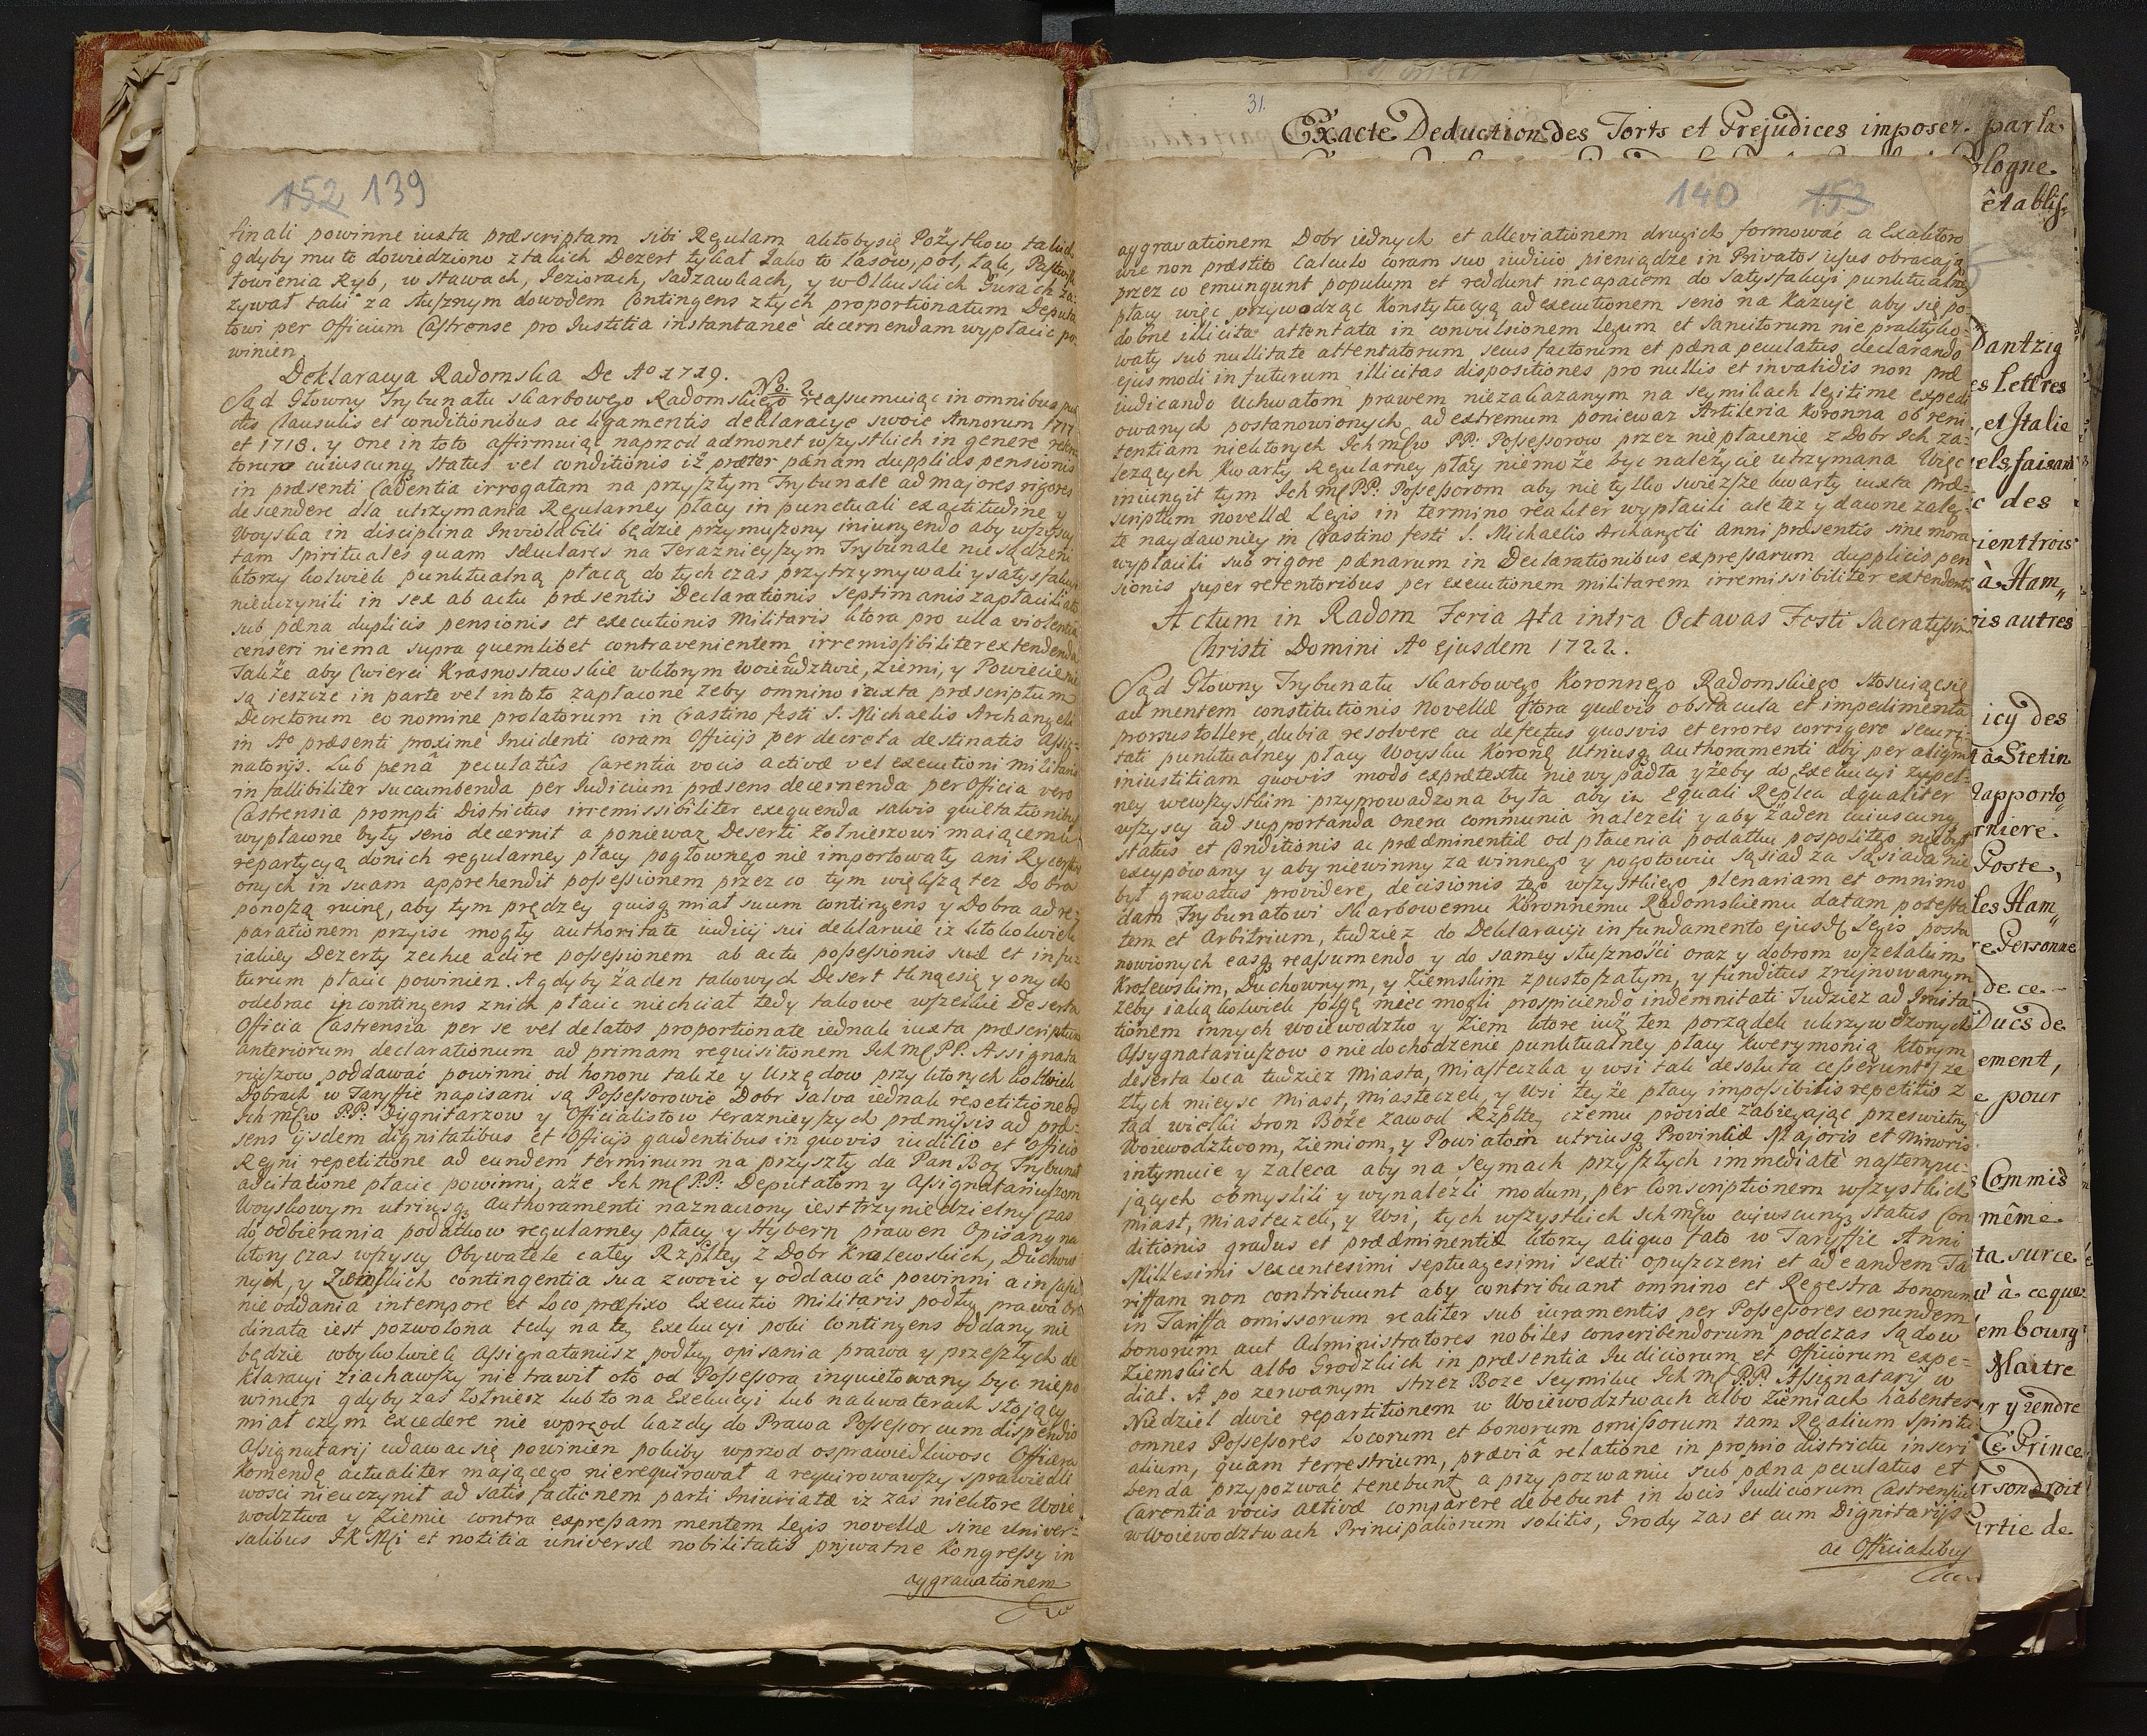 152 139
finali powinne iuxta præscriptam sibi Regulam aktobysię Pożytkow takich
gdyby mu to dowiedziono z takich Dezert tykał Jako to Lasow, pol, Łąk, Pastwisk
łowienia Ryb, w stawach, Jeziorach, Sadzawkach, y w Olkuskich Gurach za-
zywał taki za słusznym dowodem Contingens z tych proportionatum Deputa
towi per Officium Castrense pro Justitia instantaneè decernendam wypłacic po-
winien.
Deklaracya Radomska De Aº 1719.
No. 2.
Sąd Głowny Trybunału skarbowego Radomskiego reassumuiąc in omnibus pun
ctis Clausulis et conditionibus ac ligamentis deklaracye swoie Annorum 1717
et 1718. y one in toto affirmuiąc naprzod admonet wszystkich in genere reten
torum cuiuscunq status vel conditionis iż præter pænam dupplicis pensionis
in præsenti Cadentia irrogatam na przyszłym Trybunale ad majores rigores
descendere dla utrzymania Regularney płacy in punctuali exactitudine y
Woyska in disciplina Inviolabili będzie przymuszony iniungendo aby wszyscy
tam spirituales quam sæculares na Teraznieyszym Trybunale nie sądzeni
ktorzy kolwiek punktualną płacą do tych czas przytrzymywali y satysfakcyi
nieuczynili in sex ab actu præsentis Declarationis septimanis zapłacili ato
sub pæna duplicis pensionis et executionis Militaris ktora pro ulla violentia
censeri niema supra quemlibet contravenientem irremissibiliter extendenda
Także aby Cwierci Krasnostawskie w ktorym Woiewdztwie, Ziemi, y Powiecie nie
są ieszcze in parte vel in toto zapłacone zeby omnino iuxta præscriptum
Decretorum eo nomine prolatorum in Crastino festi S. Michaelis Archangeli
in Aº præsenti proximè Incidenti coram Officijs per decreta destinatis Assig-
natorijs. Sub penâ peculatûs Carentia vocis activæ vel executioni militaris
in fallibiliter sucumbenda per Iudicium præsens decernenda per Officia vero
Castrensia prompti Districtus irremissibiliter exequenda salvis quietationibus
wypłacone były serio decernit a poniewaz Deserti Zołnieszowi maiącemu
repartycyą do nich regularney płacy pogłownego nie importowały ani Rycerstwo
onych in suam apprehendit possessionem przez co tym większą tez Dobra
ponoszą ruinę, aby tym prędzey quisq miał suum contingens y Dobra ad re-
parationem przyisc mogły authoritate iudicij sui deklaruie iz kto kolwiek
iakiey Dezerty zechce adire possessionem ab actu possessionis suæ et in fu-
turum płacic powinien. A gdyby żaden takowych Desert tknąćsię y onych
odebrac y contingens z nich płacic niechciał tedy takowe wszelkie Deserta
Officia Castrensia per se vel delatos proportionate iednak iuxta præscriptum
anteriorum declarationum ad primam requisitionem Ich mć PP. Assignata
riuszow poddawać powinni od honoru takze y Urzędow przy ktorych kolwiek
Dobrach w Taryffie napisani są Possessorowie Dobr salva iednak repetitione od
Ich mćiw PP. Dygnitarzow y Officialistow teraznieyszych præmissis ad præ-
sens ijsdem dignitatibus et Officijs gaudentibus in quovis iudicio et Officio
Regni repetitione ad eundem terminum na przyszły da Pan Bog Trybunał
adcitatione płacic powinni, a że Ich mć P.P: Deputatom y Assignatariuszom
Woyskowym utriusq authoramenti naznaczony iest trzyniedzielny czas
do odbierania podatkow regularney płacy y Hybern prawen Opisany na
ktory czas wszyscy Obywatele całey Rzpltey z Dobr Krolewskich, Duchow
nych, y Ziemskich contingentia sua zwozic y oddawać powinni a in casu
nie oddania in tempore et Loco præfixo Executio Militaris podług prawa Or
dinata iest pozwolona tedy na tey Exekucyi poki Contingens oddany nie
będzie cobykolwiek Assignatariusz podług opisania prawa y przeszłych de
klaracyi ziachawszy nie trawił oto od Possessora inquietowany byc niepo
winien gdyby zas zołniesz lub to na Exekucyi lub na kwaterach stojący
miał czym excedere nie wprzod kazdy do Prawa Possessor cum dispendio
Assignatarij udawac się powinien pokiby wprzod o sprawiedliwosc Officera
Komendę actualiter mającego nierequirował a requirowawszy sprawiedli
wosci nieuczynił ad satisfactionem parti Iniuriatæ iz zas niektore Woie
wodztwa y Ziemie contra expressam mentem Legis novellæ sine Univer-
salibus JK Mći et notitia universæ nobilitatis prywatne Kongressy in
aggravationem
31.
Exacte Deduction des Torts et Prejudices imposez. par la
ologne.
établis-
140 153
aggravationem Dobr iednych et alleviationem drugich formować a Exaktoro
wie non præstito Calculo coram suo iudicio pieniądze in Privatos usus obracają
przez co emungunt populum et reddunt incapacem do satysfakcyi punktualney
płacy więc przywodząc Konstytucyą ad executionem serio na kazuje aby się po-
dobne illicita attentata in convulsionem Legum et Sancitorum nie praktyko-
wały sub nullitate attentatorum secus factorum et pæna peculatus declarando
ejusmodi in futurum illicitas dispositiones pro nullis et invalidis non præ
iudicando Uchwałom prawem niezakazanym na seymikach legitime expedi
owanych postanowionych ad extremum poniewaz Artileria Koronna ob reni-
tentiam niektorych Ich mćiw PP: Possessorow przez niepłacenie z Dobr Ich za-
lezących Kwarty Regularney płacy niemoże byc należycie utrzymana Więc
iniungit tym Ich mć PP: Possessorom aby nie tylko swiezsze kwarty iuxta præ-
scriptum novellæ Legis in termino realiter wypłacili ale tez y dawne zaleg-
łe naydawniey in Crastino festi S. Michaelis Archangeli anni præsentis sine mora
wypłacili sub rigore pænarum in Declarationibus expressarum dupplicis pen
sionis super retentoribus per executionem militarem irremissibiliter extendent
Actum in Radom Feria 4ta intra Octavas Festi Sacratissimi
Christi Domini Aº ejusdem 1722.
Sąd Głowny Trybunału skarbowego Koronnego Radomskiego stosuiącsię
ad mentem constitutionis Novellæ ktora quævis obstacula et impedimenta
prorsus tollere, dubia resolvere ac defectus quosvis et errores corrigere securi-
tati punktualney płacy Woysku Koronę Utriusq authoramenti aby per aliqm
iniustitiam quovis modo exprætextu nie wypadła y żeby do Exekucyi zupeł-
ney we wszystkim przyprowadzona była aby in Equali Replca æqualiter
wszyscy ad supportanda onera communia nalezeli y aby żaden cuiuscunq
status et Conditionis ac præeminentiæ od płacenia podatku pospolitego nie był
excypowany y aby niewinny za winnego y pogotowiu sąsiad za sąsiada nie
był gravatus providere, decisionis tego wszystkiego plenariam et omnimo
dam Trybunałowi skarbowemu Koronnemu Radomskiemu datam potesta
tem et Arbitrium, tudziez do Deklaracyi in fundamento ejusdē Legis posta
nowionych easq reassumendo y do samey słuszności oraz y dobrom wszelakim
Krolewskim, Duchownym, y Ziemskim zpustoszałym, y funditus zrujnowanym
żeby iakąkolwiek folgę miec mogli prospiciendo indemnitati Tudziez ad Imita
tionem innych Woiewodztw y Ziem ktore iuż ten porządek
Assygnatariuszow o niedochodzenie punktualney płacy kwerymonią ktorym
deserta loca tudziez Miasta, Miasteczka y wsi tak desoluta cesserunt ze
z tych mieysc Miast, Miasteczek, y Wsi teyże płacy impossibilis repetitio z
tąd wielki bron Boże zawod Rzpltey czemu provide zabiegając przeswietny
Woiewodztwom, Ziemiom, y Powiatom utriusq Provinciæ Majoris et Minoris
intymuie y zaleca aby na Seymach przyszłych immediatè nastempu-
jących obmyslili y wynaleźli modum, per Conscriptionem wszystkich
miast, Miasteczek, y Wsi, tych wszystkich Ich mćiw cujuscunq status Con
ditionis gradus et præeminentiæ ktorzy aliquo fato w Taryffie Anni
Millesimi sexcentesimi septuagesimi sexti opuszczeni et ad eandem Ta
riffam non contribuunt aby contribuant omnino et Regestra bonorum
in Tariffa omissorum realiter sub iuramentis per Possessores eorundem
bonorum aut Administratores nobiles conscribendorum podczas sądow
Ziemskich albo Grodzkich in præsentia Iudiciorum et Officiorum expe-
diat. A po zerwanym strzez Boze Seymiku Ich mć PP. Assignatarij w
Niedziel dwie repartitionem w Woiewodztwach albo Ziemiach habentes
omnes Possessores Locorum et bonorum omissorum tam Regalium Spiritu
alium, quam terrestrium, præviâ relatione in proprio districtu inscri
benda przypozwać tenebunt, a przy pozwaniu sub pæna peculatus et
Carentia vocis activæ comparere debebunt in locis Iudiciorum Castrensium
w Woiewodztwach Principaliorum solitis, Grody zas et cum Dignitarijs
ac Officialibus
Dantzig
es Lettres
, et Italie
els faisant
c des
rient trois
à Ham„
ois autres
icy des
t à Stetin
Rapporto
rniere.
Poste,
les Ham„
re Personne
de ce.
Ducs de
ement,
e pour
s Commis
même
ta surce
u' à ce que
embourg
Maitre
er y rendre
Ce Prince
ur son droit
artie de